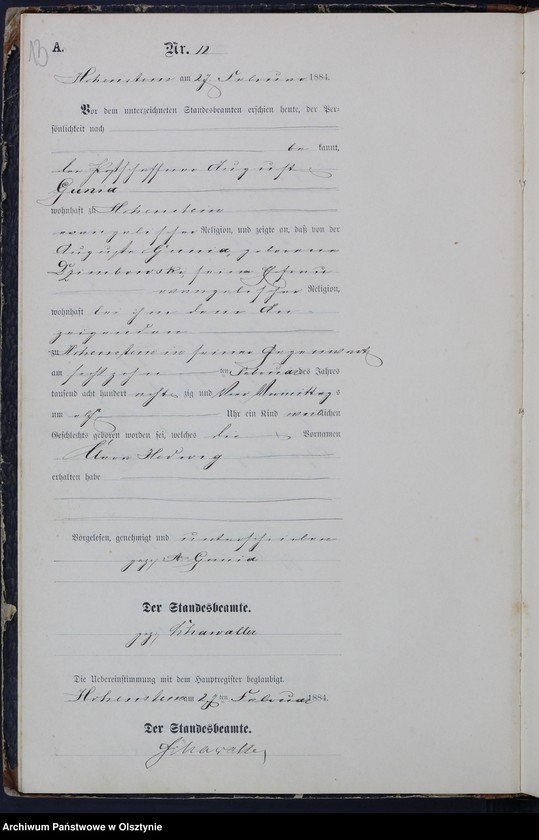 13
A.
Nr. 12
Hohenstein am 27 Februar 1884.
Vor dem unterzeichneten Standesbeamten erschien heute, der Per-
sönlichkeit nach
be kannt,
der Postschaffner August
Gunia
wohnhaft zu Hohenstein
evangelischer Religion, und zeigte an, daß von der
Auguste Gunia, geborene
Dzembowski, seine Ehefrau
evangelischer Religion,
wohnhaft bei ihm dem An-
zeigenden
zu Hohenstein in seiner Gegenwart
am sechszehn ten Februar des Jahres
tausend acht hundert acht zig und vier Vormittags
um elf Uhr ein Kind weiblichen
Geschlechts geboren worden sei, welches die Vornamen
Clara Hedwig
erhalten habe
Vorgelesen, genehmigt und unterschrieben
gez. A. Gunia
Der Standesbeamte.
gez.
Die Uebereinstimmung mit dem Hauptregister beglaubigt.
Hohenstein am 27 ten Februar 1884.
Der Standesbeamte.
Archiwum Państwowe w Olsztynie